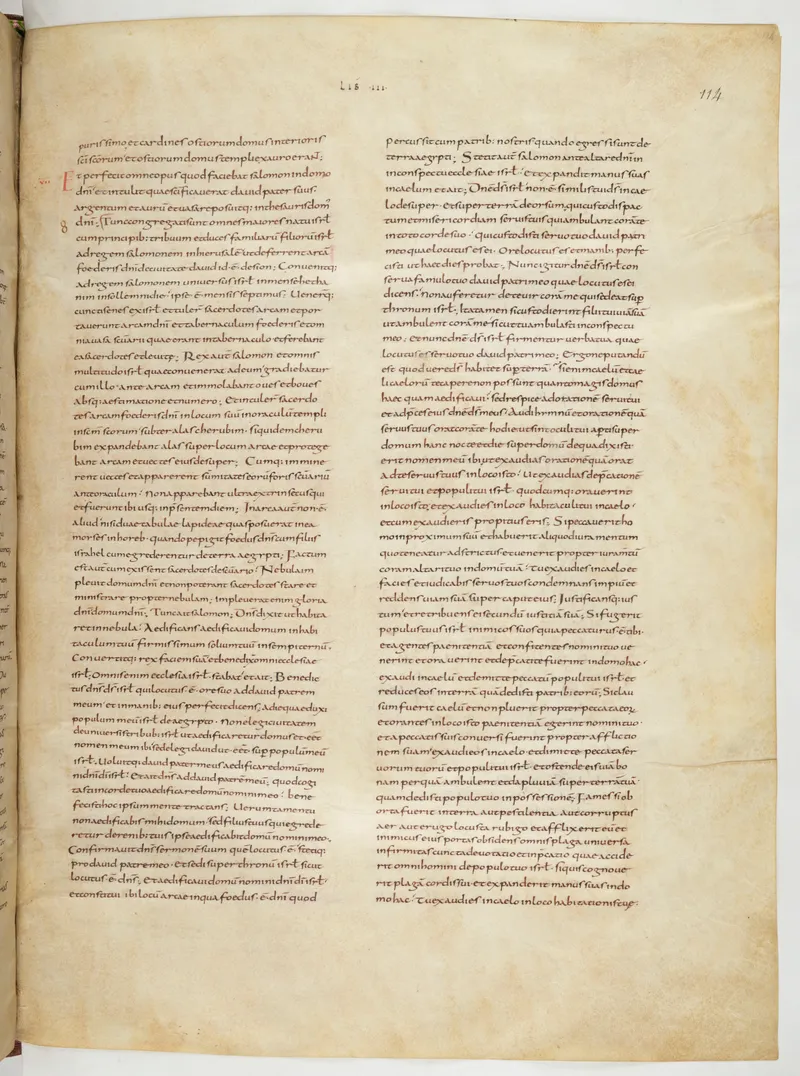 LIB · III ·
114
purissimo et cardines ostiorum domus interioris
sci scorum et ostiorum domus templi ex auro erant;
Et perfecit omne opus quod faciebat salomon in domo
dni et intulit quae scificauerat dauid pater suus
argentum et aurū et uasa reposuitq; in thesauris dom'
dni; Tunc congregati sunt omnes maiores natu isrl
cum principib; tribuum et duces familiarū filiorū isrl
ad regem salomonem in hierusalē ut deferrent arcā
foederis dni de ciuitate dauid id · ē · de sion; Conuenitq;
ad regem salomonem uniuersus isrl in mense hetha
nim in sollemni die · ipse · ē · mensis septimus; Ueneruntq;
cuncti senes ex isrl et tuler̄ sacerdotes arcam et por
tauerunt arcam dni et tabernaculum foederis et om
nia uasa scuarii quae erant in tabernaculo et ferebant
ea sacerdotes et leuitae; Rex aut salomon et omnis
multitudo isrl quae conuenerat ad eum gradiebatur
cum illo ante arcam et immolabant oues et boues
absq; aestimatione et numero; Et intuler̄ sacerdo
tes arcam foederis dni in locum suū in oraculū templi
in scm scorum subter alas cherubim · siquidem cheru
bim expandebant alas super locum arcae et protege
bant arcam et uectes eius desuper; Cumq; immine
rent uectes et apparerent summitates eorū foris scuariū
ante oraculum · Non apparebant ultra extrinsecus qui
et fuerunt ibi usq; in psentem diem; In arca aut non · ē ·
aliud nisi duae tabulae lapideae quas posuerat in ea
morses in horeb · quando pepigit foedus dns cum filiis
israhel cum egrederentur de terra aegypti; Factum
est aut cum exissent sacerdotes de scuario · Nebula im
pleuit domum dni et non poterant sacerdotes stare et
ministrare propter nebulam; impleuerat enim gloria
dni domum dni; Tunc ait salomon; Dns dixit ut habita
ret in nebula · Aedificans aedificaui domum in habi
taculum tuū firmissimum solium tuū in sempiternū.
Conuertitq; rex faciem suā et benedixit omni ecclesiae
isrl; Omnis enim ecclesia isrl stabat et ait; Benedic
tus dns ds isrl qui locutus · ē · ore suo ad dauid patrem
meum et in manib; eius perfecit dicens; A die qua eduxi
populum meū isrl de aegypto · Non elegi ciuitatem
de uniuersis tribub; isrl ut aedificaretur domus et eet
nomen meum ibi sed elegi dauid ut eet sup populū meū
isrl. Uoluitq; dauid pater meus aedificare domū nomi
ni dni di isrl · Et ait dns ad dauid patrē meū; quod cogi
tasti in corde tuo aedificare domū nomini meo · bene
fecisti hoc ipsum mente tractans; Uerumtamen tu
non aedificabis mihi domum sed filius tuus qui egrede
retur de renib; tuis ipse aedificabit domū nomini meo.
Confirmauit dns sermonē suum quē locutus · ē · stetiq;
pro dauid patre meo · et sedi super thronū isrl sicut
locutus · ē · dns; Et aedificaui domū nomini dni di isrl ·
et constitui ibi locū arcae in qua foedus · ē · dni quod
percussit cum patrib; nostris quando egressi sunt de
terra aegypti; Stetit aut salomon ante altare dni in
in conspectu ecclesiae isrl · et expandit manus suas
in caelum et ait; Dne ds isrl · non · ē · similis tui ds in cae
lo desuper · et super terrā deorsum, qui custodis pac
tum et misericordiam seruis tuis qui ambulant corā te
in toto corde suo · qui custodisti seruo tuo dauid patri
meo quae locutus es ei · Ore locutus es et manib; perfe
cisti ut haec dies probat. Nunc igitur dne ds isrl con
serua famulo tuo dauid patri meo quae locutus es ei
dicens. non auferetur de te uir corā me qui sedeat sup
thronum isrl, Ita tamen si custodierint filii tui uiā suā
ut ambulent corā me sicut tu ambulasti in conspectu
meo · et nunc dne ds isrl firmentur uerba tua quae
locutus es seruo tuo dauid patri meo; Ergo ne putandū
est quod uere ds habitet sup terrā · si enim caelū et cae
li caelorū te capere non possunt quanto magis domus
haec quam aedificaui · sed respice ad orationē serui tui
et ad pces eius dne ds meus · Audi hymnū et orationē quā
seruus tuus orat corā te hodie ut sint oculi tui apti super
domum hanc nocte et die super domū de qua dixisti ·
erit nomen meū ibi, ut exaudias orationē quā orat
ad te seruus tuus in loco isto · Ut exaudias depcationē
serui tui et populi tui isrl · quodcumq; orauerint
in loco isto, et exaudies in loco habitaculi tui in caelo ·
et cum exaudieris propitius eris; Si peccauerit ho
mo in proximum suū et habuerit aliquod iuramentum
quo teneatur adstrictus et uenerit propter iuramtū
coram altari tuo in domū tuā · Tu exaudies in caelo et
facies et iudicabis seruos tuos condemnans impiū et
reddens uiam suā super caput eius; Iustificansq; ius
tum et retribuens ei secundū iustitiā suā; Si fugerit
populus tuus isrl inimicos suos quia peccaturus · ē · tibi ·
et agentes paenitentiā et confitentes nomini tuo ue
nerint et orauerint et depcati te fuerint in domo hac ·
exaudi in caelū et demitte peccatū populi tui isrl et
reduces eos in terrā quā dedisti patrib; eorū; Si clau
sum fuerit caelū et non pluerit propter peccata eoꝝ
et orantes in loco isto paenitentiā egerint nomini tuo ·
et a peccatis suis conuersi fuerint propter afflictio
nem suam · exaudi eos in caelo et dimitte peccata ser
uorum tuorū et populi tui isrl · et ostende eis uiā bo
nam per quā ambulent et da pluuiā super terrā tuā ·
quam dedisti populo tuo in possessionē; Fames si ob
orta fuerit in terra aut pestilentia. aut corruptus
aer aut erugo locusta rubigo et afflixerit eū et
inimicus eius portas obsidens omnis plaga uniuersa
infirmitas cuncta deuotatio et inpcatio quae accide
rit omni homini de populo tuo isrl · si quis cognoue
rit plagā cordis sui et expanderit manus suas in do
mo hac · Tu exaudies in caelo in loco habitationis tuae ·